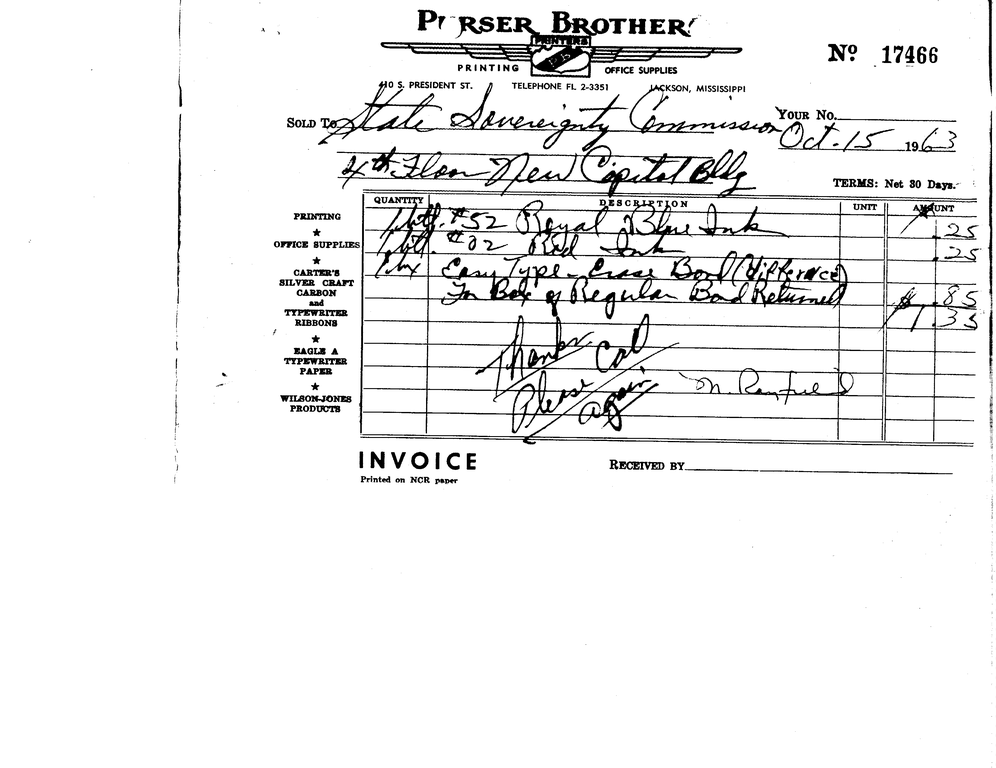 PURSER BROTHERS
PRINTERS
PRINTING OFFICE SUPPLIES
No 17466
410 S. PRESIDENT ST. TELEPHONE FL 2-3351 JACKSON, MISSISSIPPI
SOLD TO State Sovereignty Commission YOUR NO.
Oct. 15 1963
4th Floor New Capitol Bldg
TERMS: Net 30 Days.
QUANTITY DESCRIPTION UNIT AMOUNT
1 btl. #52 Royal Blue Ink .25
1 btl. #02 Red Ink .25
1 bx Easy Type-Erase Bond (difference)
For Box of Regular Bond Returned .85
$1.35
Thanks Call
Please again
PRINTING
★
OFFICE SUPPLIES
★
CARTER'S
SILVER CRAFT
CARBON
and
TYPEWRITER
RIBBONS
★
EAGLE A
TYPEWRITER
PAPER
★
WILSON-JONES
PRODUCTS
INVOICE
Printed on NCR paper
RECEIVED BY